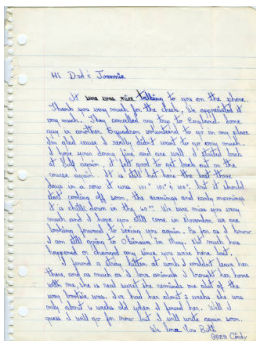 Hi Dad & Joannie
It was nice talking to you on the phone.
Thank you very much for the check, we appreciated it
very much. They cancelled my trip to England. Some
guy in another Squadron volunteered to go in my place
I'm glad cause I really didn't want to go very much.
I have been doing fine and am well. I started back
at it again. It felt good to get back out on the
course again. It is still hot here the last three
days in a row it was 111° 110° & 105°, but it should
start cooling off soon, the evenings and early mornings
it's chilly down in the 60's. We sure miss you very
much and I hope you still come in November, we are
looking forward to seeing you again. As far as I know
I am still going to Okinawa in May. Not much has
happened or changed any since you were here last.
I found a stray kitten at work, I couldn't leave her
there, and as much as I love animals I brought her home
with me. She is real sweet she reminds me alot of the
way was. I've had her about 2 weeks she was
only about 6 weeks old when I found her. Well I
guess I will go for now but I will write again soon.
We Love You Both
Cindy